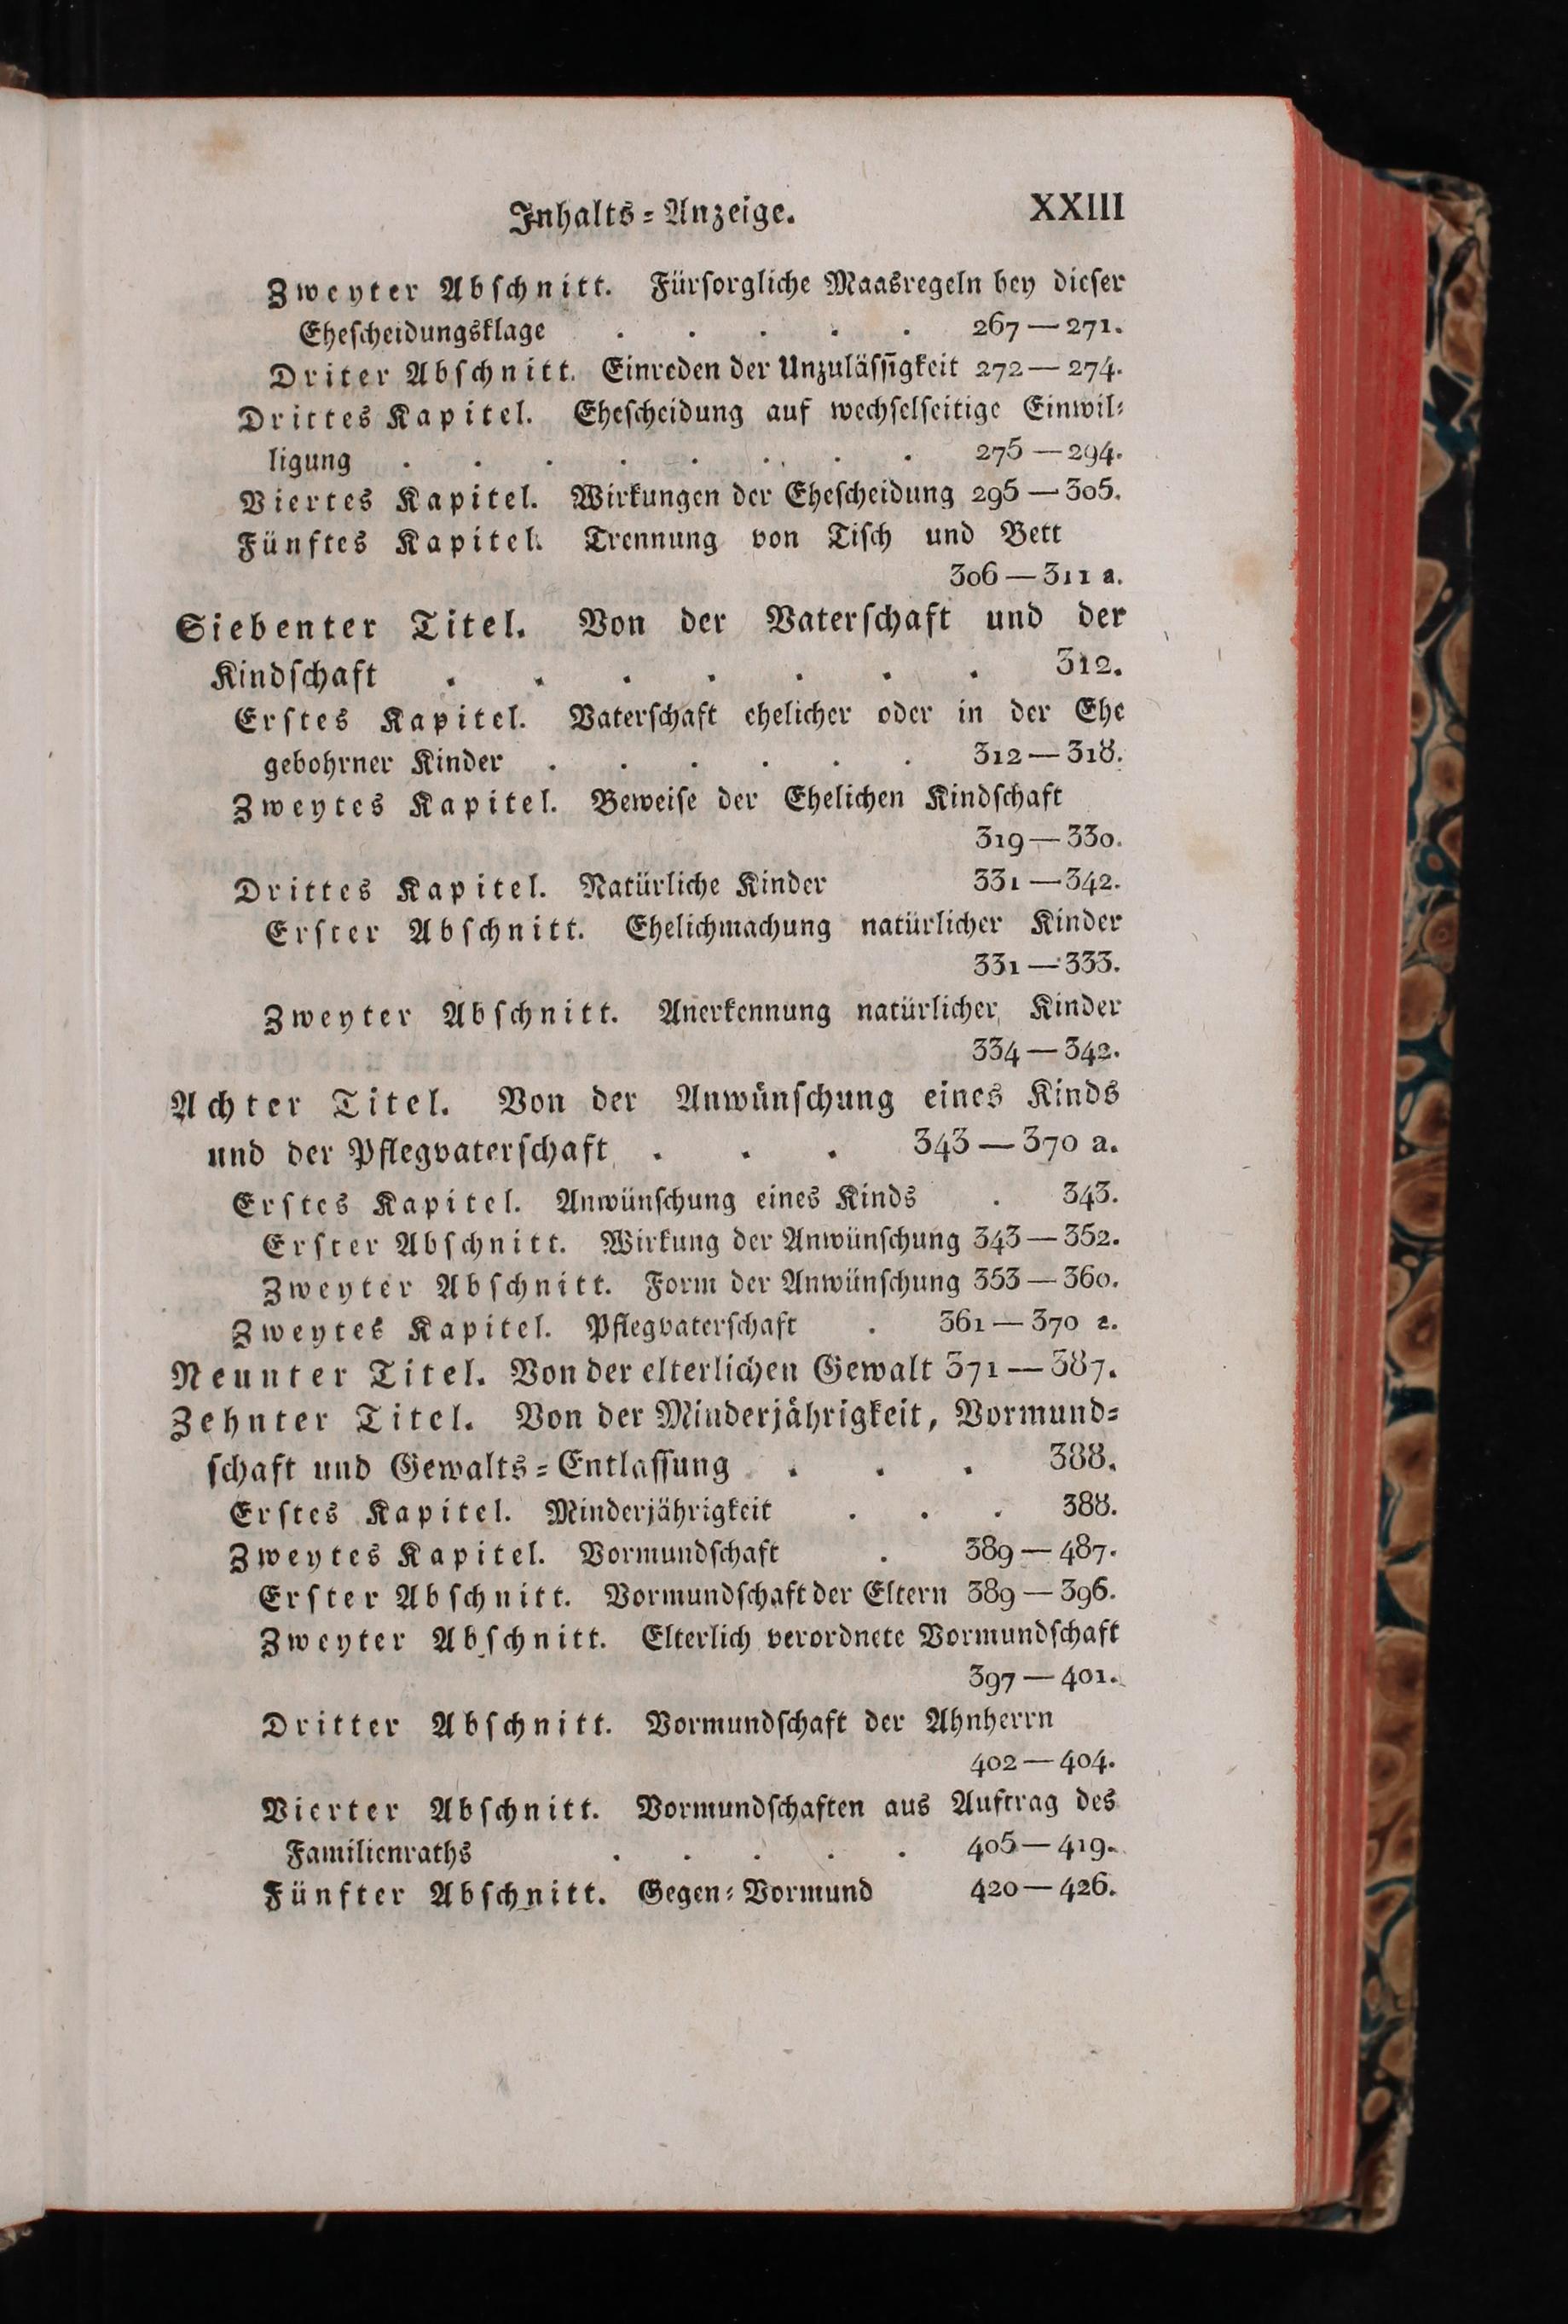 Inhalts-Anzeige. XXIII
Zweyter Abschnitt. Fürsorgliche Maasregeln bey dieser
Ehescheidungsklage . . . . . 267—271.
Driter Abschnitt. Einreden der Unzulässigkeit 272—274.
Drittes Kapitel. Ehescheidung auf wechselseitige Einwil-
ligung . . . . . . . . 275—294.
Viertes Kapitel. Wirkungen der Ehescheidung 295—305.
Fünftes Kapitel. Trennung von Tisch und Bett
306—311 a.
Siebenter Titel. Von der Vaterschaft und der
Kindschaft . . . . . . . 312.
Erstes Kapitel. Vaterschaft ehelicher oder in der Ehe
gebohrner Kinder . . . . . . 312—318.
Zweytes Kapitel. Beweise der Ehelichen Kindschaft
319—330.
Drittes Kapitel. Natürliche Kinder 331—342.
Erster Abschnitt. Ehelichmachung natürlicher Kinder
331—333.
Zweyter Abschnitt. Anerkennung natürlicher Kinder
334—342.
Achter Titel. Von der Anwünschung eines Kinds
und der Pflegvaterschaft . . . 343—370 a.
Erstes Kapitel. Anwünschung eines Kinds . 343.
Erster Abschnitt. Wirkung der Anwünschung 343—352.
Zweyter Abschnitt. Form der Anwünschung 353—360.
Zweytes Kapitel. Pflegvaterschaft . 361—370 a.
Neunter Titel. Von der elterlichen Gewalt 371—387.
Zehnter Titel. Von der Minderjährigkeit, Vormund-
schaft und Gewalts-Entlassung . . . 388.
Erstes Kapitel. Minderjährigkeit . . . 388.
Zweytes Kapitel. Vormundschaft . 389—487.
Erster Abschnitt. Vormundschaft der Eltern 389—396.
Zweyter Abschnitt. Elterlich verordnete Vormundschaft
397—401.
Dritter Abschnitt. Vormundschaft der Ahnherrn
402—404.
Vierter Abschnitt. Vormundschaften aus Auftrag des
Familienraths . . . . . 405—419.
Fünfter Abschnitt. Gegen-Vormund 420—426.